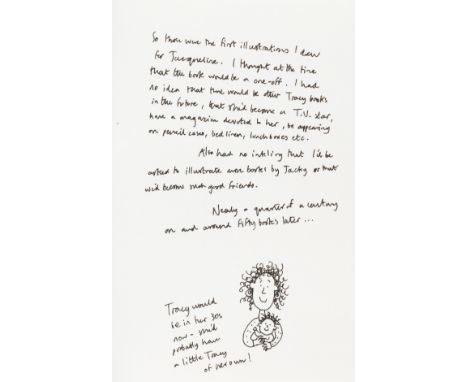 So these were the first illustrations I drew
for Jacqueline. I thought at the time
that the book would be a one-off. I had
no idea that there would be other Tracy books
in the future, that she'd become a T.V. star,
have a magazine devoted to her, be appearing
on pencil cases, bed linen, lunch boxes etc.
Also had no inkling that I'd be
asked to illustrate more books by Jacky or that
we'd become such good friends.
Nearly a quarter of a century
on and around fifty books later...
Tracy would
be in her 30s
now - she'd
probably have
a little Tracy
of her own!